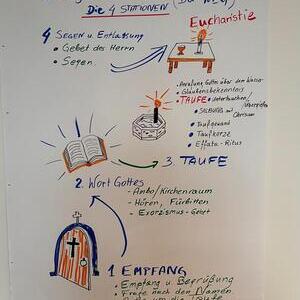 Die 4 STATIONEN
Eucharistie
4 SEGEN u. Entlassung
• Gebet des Herrn
• Segen
Anrufung Gottes über dem Wasser
• Glaubensbekenntnis
• TAUFE
• SALBUNG mit Chrisam
• Taufgewand
• Taufkerze
• Effata-Ritus
3. TAUFE
2. Wort Gottes
- Ambo/Kirchenraum
- Hören, Fürbitten
- Exorzismus-Gebet
1 EMPFANG
• Empfang u. Begrüßung
• Frage nach dem Namen